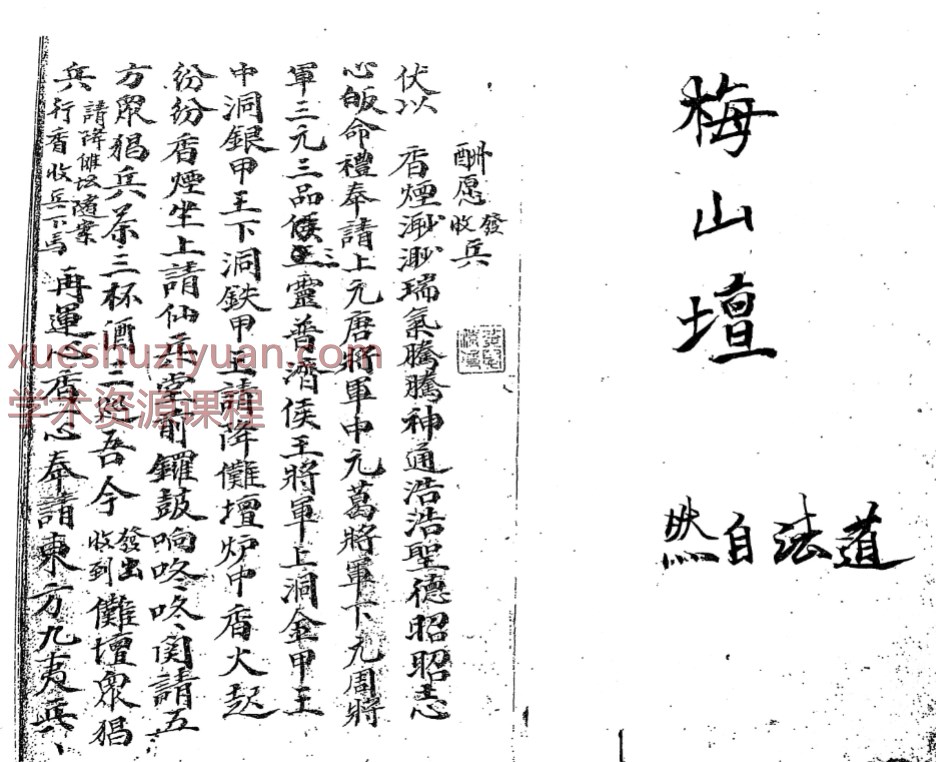 梅山壇
道法自然
酬愿發收兵
伏以 香煙渺渺瑞氣騰騰神通浩浩聖德昭昭志
心皈命禮奉請上元唐將軍中元葛將軍下元周將
軍三元三品侯王靈普濟侯王將軍上洞金甲王
中洞銀甲王下洞鉄甲王請降儺壇炉中香火起
紛紛香煙坐上請仙兵堂前鑼鼓响咚咚関請五
方眾猖兵茶三杯酒三巡吾今發出收到儺壇眾猖
兵請降儺坛隨案行香收兵下馬再運心香一心奉請東方九夷兵
xueshuziyuan.com
学术资源课程